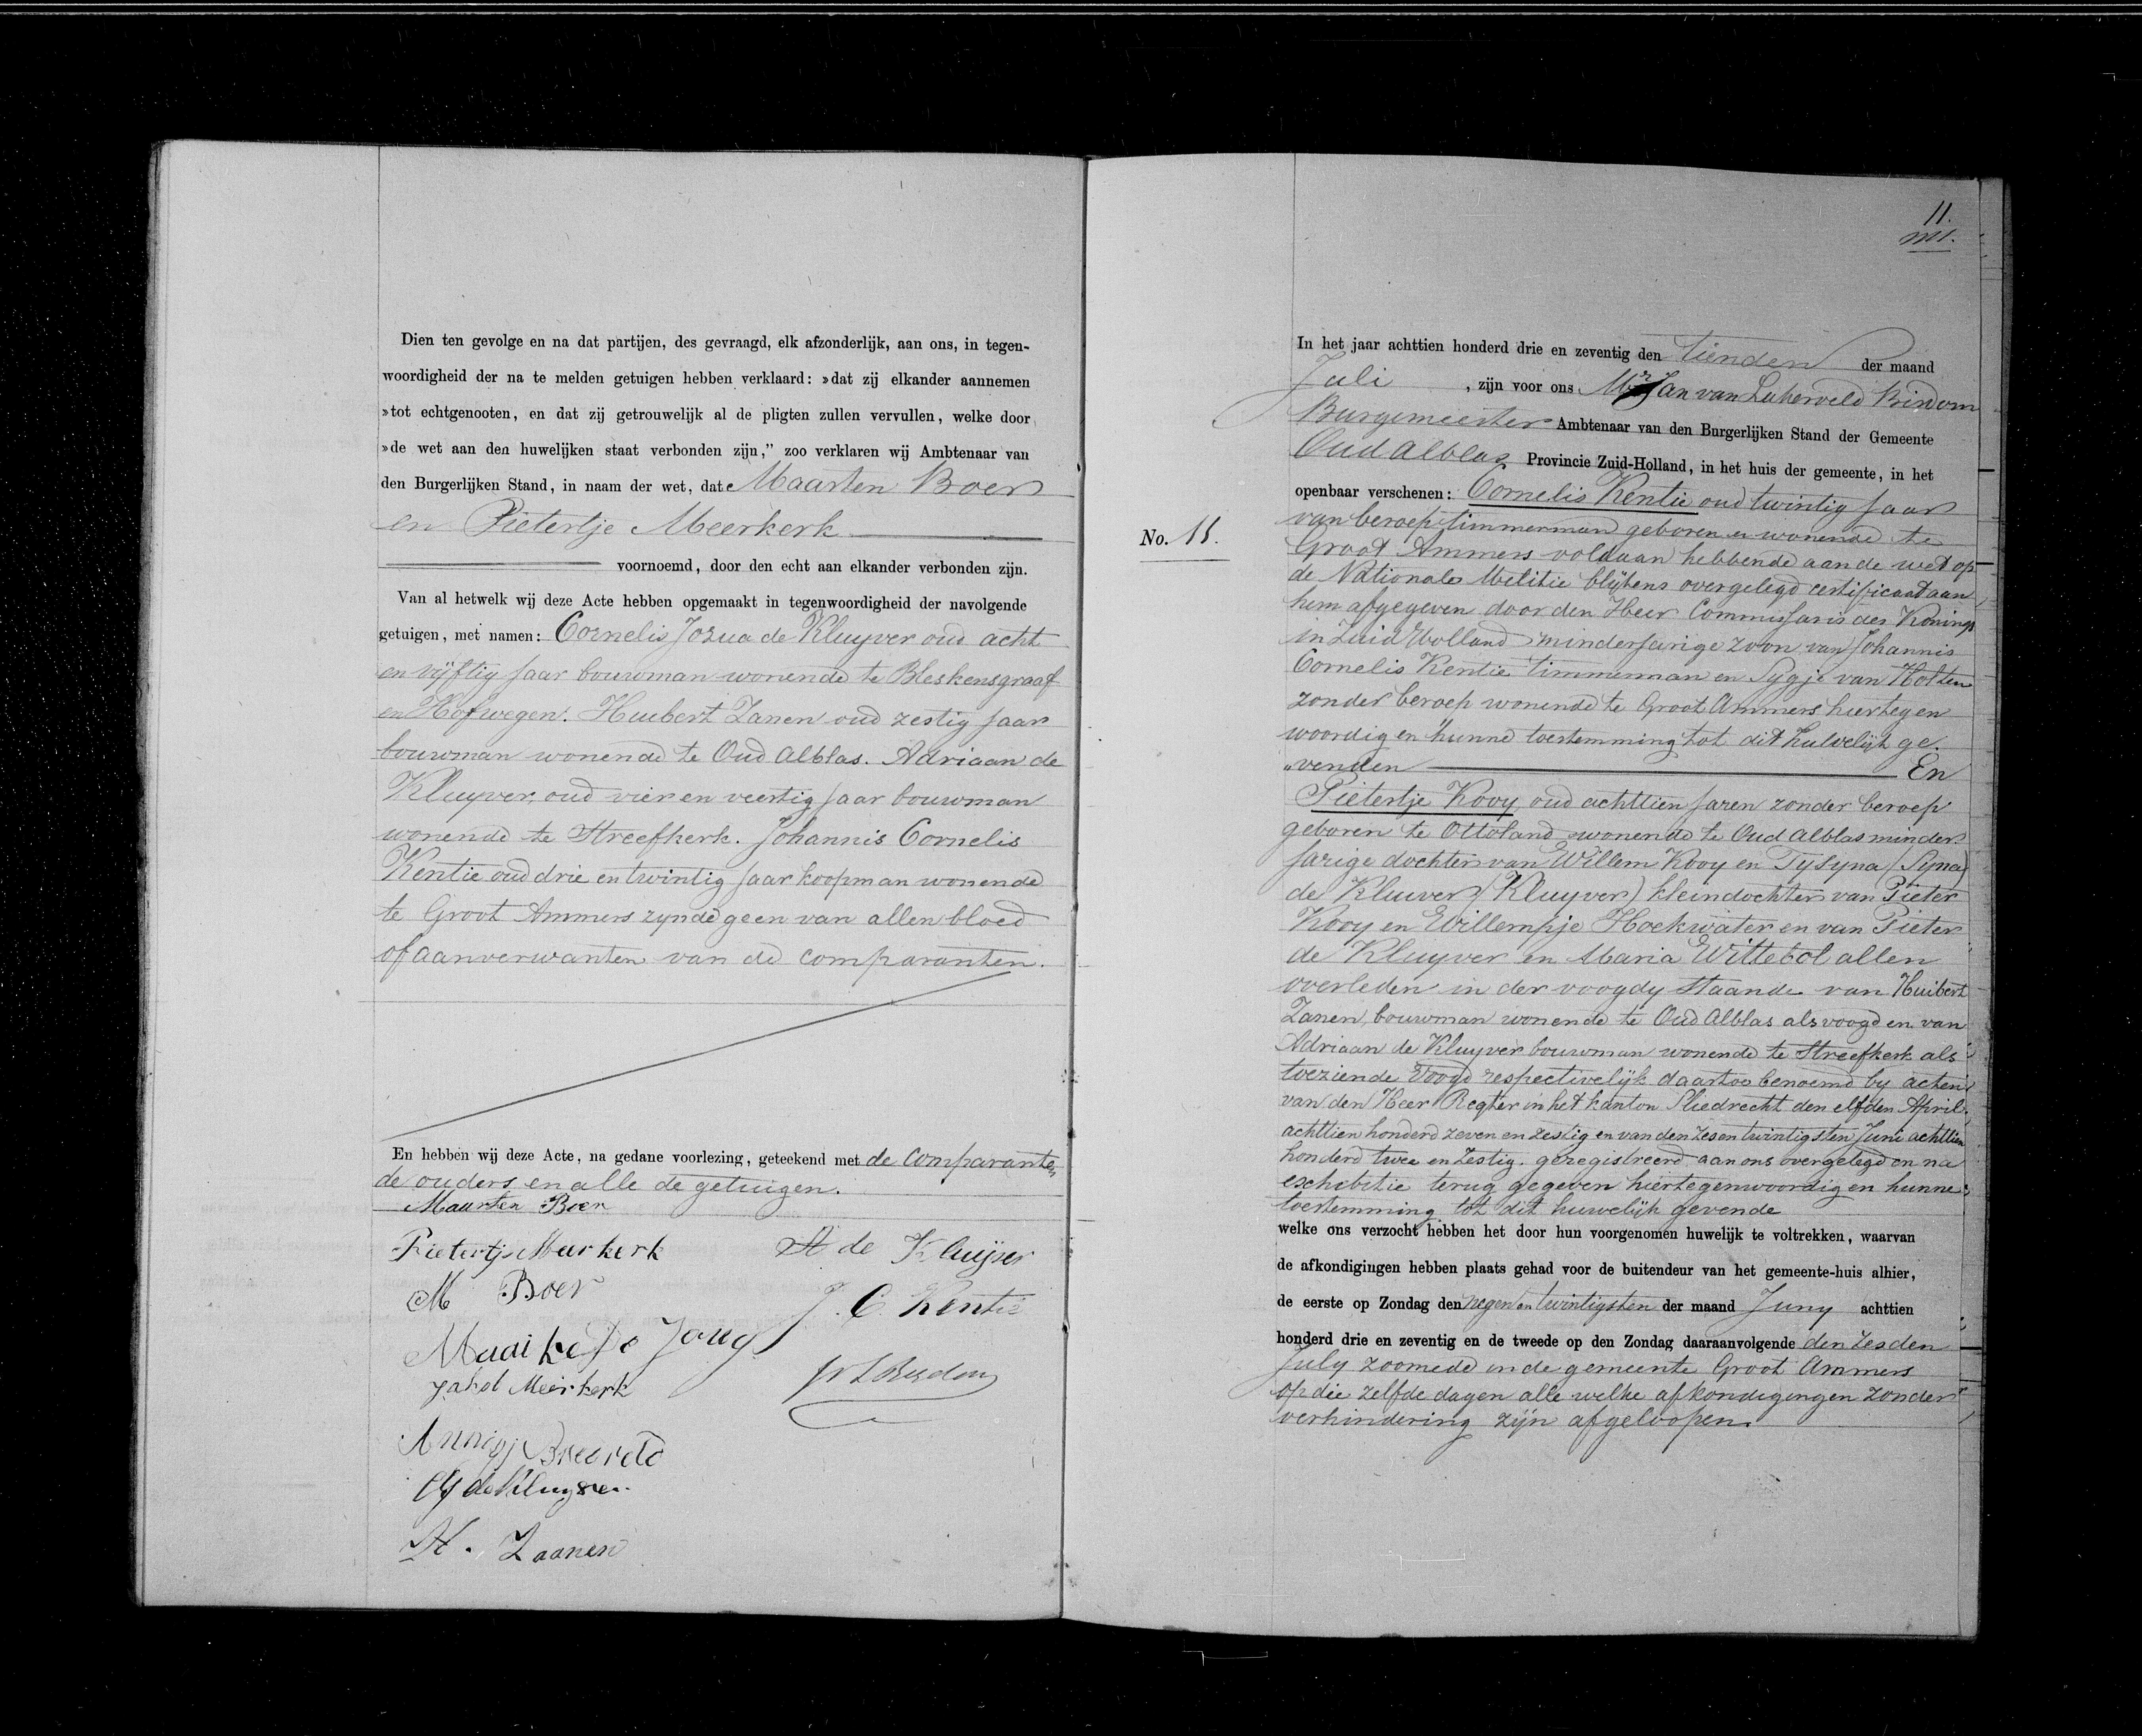 Dien ten gevolge en na dat partijen, des gevraagd, elk afzonderlijk, aan ons, in tegen-
woordigheid der na te melden getuigen hebben verklaard: »dat zij elkander aannemen
»tot echtgenooten, en dat zij getrouwelijk al de pligten zullen vervullen, welke door
»de wet aan den huwelijken staat verbonden zijn,” zoo verklaren wij Ambtenaar van
den Burgerlijken Stand, in naam der wet, dat Maarten Boer
en Pietertje Meerkerk
voornoemd, door den echt aan elkander verbonden zijn.
Van al hetwelk wij deze Acte hebben opgemaakt in tegenwoordigheid der navolgende
getuigen, met namen: Cornelis Josua de Kluyver oud acht
en vyftig jaar bouwman wonende te Bleskensgraaf
en Hofwegen. Huibert Zanen oud zestig jaar
bouwman wonende te Oud Alblas. Adriaan de
Kluyver, oud vier en veertig jaar bouwman
wonende te Streefkerk. Johannis Cornelis
Kentie oud drie en twintig jaar koopman wonende
te Groot Ammers zynde geen van allen bloed
of aanverwanten van de comparanten.
En hebben wij deze Acte, na gedane voorlezing, geteekend met de comparanten
de ouders en alle de getuigen.
Maarten Boer
Pietertje Meerkerk
A de Kluijver
M Boer
J. C. Kentie
Maaike de Jong
Jakob Meerkerk
Annigje
CJ de Kluyver
H. Zaanen
11.
No. 11.
In het jaar achttien honderd drie en zeventig den tienden der maand
Juli, zijn voor ons Mr Jan van
Burgemeester Ambtenaar van den Burgerlijken Stand der Gemeente
Oud Alblas Provincie Zuid-Holland, in het huis der gemeente, in het
openbaar verschenen: Cornelis Kentie oud twintig jaar
van beroep timmerman geboren en wonende te
Groot Ammers voldaan hebbende aan de wet op
de Nationale Militie blijkens overgelegd certificaat aan
hem afgegeven door den Heer Commissaris des Konings
in Zuid Holland minderjarige zoon van Johannis
Cornelis Kentie timmerman en Sygje van Hotten
zonder beroep wonende te Groot Ammers hiertegen
woordig en hunne toestemming tot dit huwelijk ge.
„venden En
Pietertje Kooy oud achttien jaren zonder beroep
geboren te Ottoland wonende te Oud Alblas minder
jarige dochter van Willem Kooy en Tysyna (Syna)
de Kluiver (Kluyver) kleindochter van Pieter
Kooy en Willempje Hoekwater en van Pieter
de Kluyver en Maria Wittebol allen
overleden in der voogdy staande van Huibert
Zanen, bouwman wonende te Oud Alblas als voogd en van
Adriaan de Kluyver bouwman wonende te Streefkerk als
toeziende voogd respectivelijk daartoe benoemd by acten
van den Heer Regter in het kanton Sliedrecht den elfden April
achttien honderd zeven en zestig en van den zes en twintigsten Juni achttien
honderd twee en zestig. geregistreerd aan ons overgelegd en na
exhibitie terug gegeven hiertegenwoordig en hunne
toestemming tot dit huwelijk gevende
welke ons verzocht hebben het door hun voorgenomen huwelijk te voltrekken, waarvan
de afkondigingen hebben plaats gehad voor de buitendeur van het gemeente-huis alhier,
de eerste op Zondag den negen en twintigsten der maand Juny achttien
honderd drie en zeventig en de tweede op den Zondag daaraanvolgende den zesden
July zoomede in de gemeente Groot Ammers
op die zelfde dagen alle welke afkondigingen zonder
verhindering zijn afgeloopen.